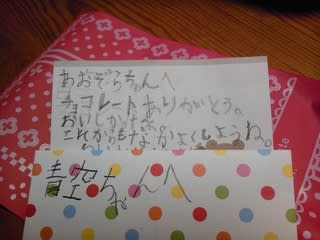 あおぞらちゃんへ
チョコレートありがとう。
おいしかったよ
これからもなかよくしようね。
青空ちゃんへ